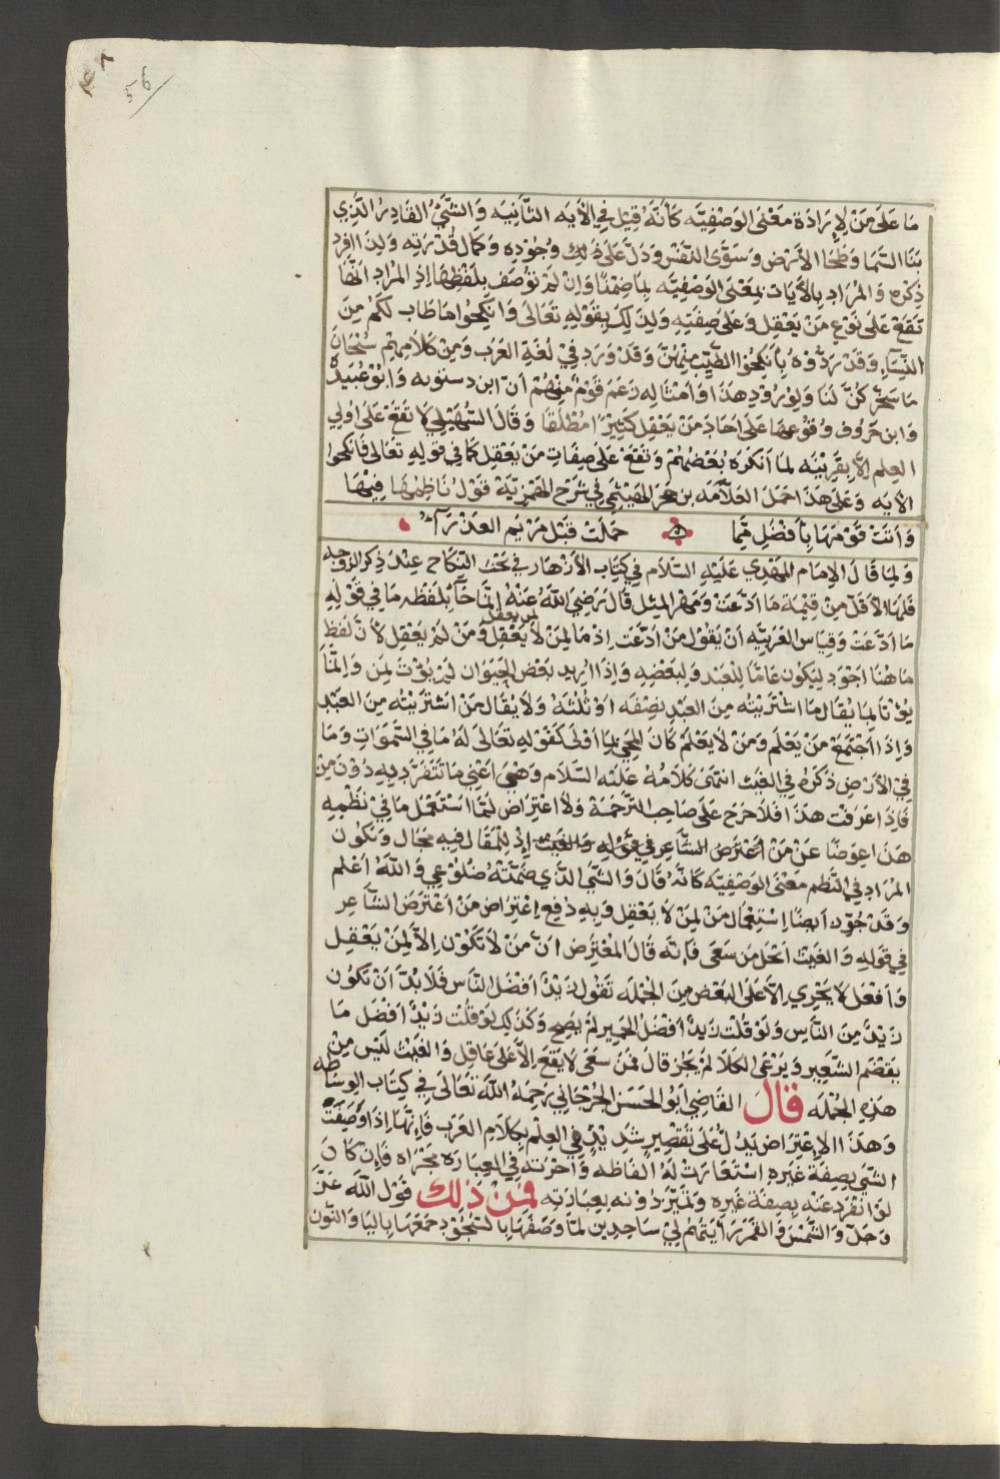 ٤٨
56
ما على من لإرادة معنى الوصفيه كأنه قيل في الأيه الثانيه والشيء القادر الذي
بنا السما وطحا الأرض وسوى النفس ودل على ذلك وجوده وكمال قدرته ولذا افرد
ذكره والمراد بالأيات معنى الوصفيه بما ضمنا وان لم توصف بلفظها اذ المراد انها
تقع على نوع من يعقل وعلى صفته ولذلك بقوله تعالى وانكحوا ما طاب لكم من
النساء وقد ردوه بانكحوا الطيب منهن وقد ورد في لغة العرب ومن كلامهم سبحان
ما سخركن لنا ولورود هذا وامثاله زعم قوم منهم ابن درستويه وابو عبيدة
وابن خروف وقوعها على احاد من يعقل كثيرا مطلقا وقال السهيلي لا تقع على اولي
العلم إلا بقرينه لما انكره بعضهم وتقع على صفات من يعقل كما في قوله تعالى فانكحوا
الأيه وعلى هذا احمل العلامه بن حجر الهيثمي في شرح الهمزية قول ناظمها فيها
واتت قومها بأفضل مما حملت قبل مريم العذراء
ولما قال الإمام المهدي عليه السلام في كتاب الأزهار في بحث النكاح عند ذكر الزوجه
فلها الأقل من قيمة ما ادعت ومهر المثل قال رضي الله عنه انما جا بلفظه ما في قوله
ما ادعت وقياس العربيه ان يقول من ادعت اذ ما لمن لا يعقل ومن لمن يعقل لأن لفظ
ما هنا اجود ليكون عاما للعبد ولبعضه واذا اريد بعض الحيوان لم يؤت بمن وانما
يؤتا بما يقال ما اشتريته من العبد نصفه او ثلثه ولا يقال من اشتريته من العبد
واذا اجتمع من يعلم ومن لا يعلم كان المجي بما اولى كقوله تعالى له ما في السموات وما
في الأرض ذكره في الغيث انتهى كلامه عليه السلام وهي اعني ما تتفرد به دون من
فاذا عرفت هذا فلا حرج على صاحب الترجمة ولا اعتراض لما استعمل ما في نظمه
هذا عوضا عن من اعترض الشاعر في قوله والغيث اذ للمقال فيه مجال وتكون
المراد في النظم معنى الوصفيه كانه قال والشي الذي ضمنته ضلوعي والله اعلم
وقد جود ايضا استعمال من لمن لا يعقل وبه دفع اعتراض من اعترض الشاعر
في قوله والغيث انحل من سعى فانه قال المعترض ان من لا تكون الا لمن يعقل
وافعل لا يجري الا على البعض من الجمله تقول زيد افضل الناس فلا بد ان تكون
زيد من الناس ولو قلت زيد افضل الحمير لم يصح وكذلك لو قلت زيد افضل ما
يقضم الشعير ويرعى الكلا لم يجز قال فمن سعى لا يقع الا على عاقل والغيث ليس من
هذه الجمله قال القاضي ابو الحسن الجرجاني رحمه الله تعالى في كتاب الوساطه
وهذا الاعتراض يدل على تقصير شديد في العلم بكلام العرب فانها اذا وصفت
الشي بصفة غيره استعارت له الفاظه واجرته في العباره مجراه فان كان
لو انفرد عنه بصفة غيره وتميز دونه بعبارته فمن ذلك قول الله عز
وجل والشمس والقمر رايتهم لي ساجدين لما وصفها بالسجود جمعها باليا والنون